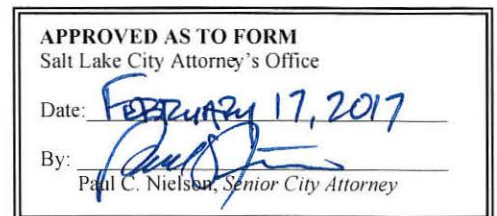 APPROVED AS TO FORM
Salt Lake City Attorney's Office
Date: FEBRUARY 17, 2017
By:
Paul C. Nielson, Senior City Attorney